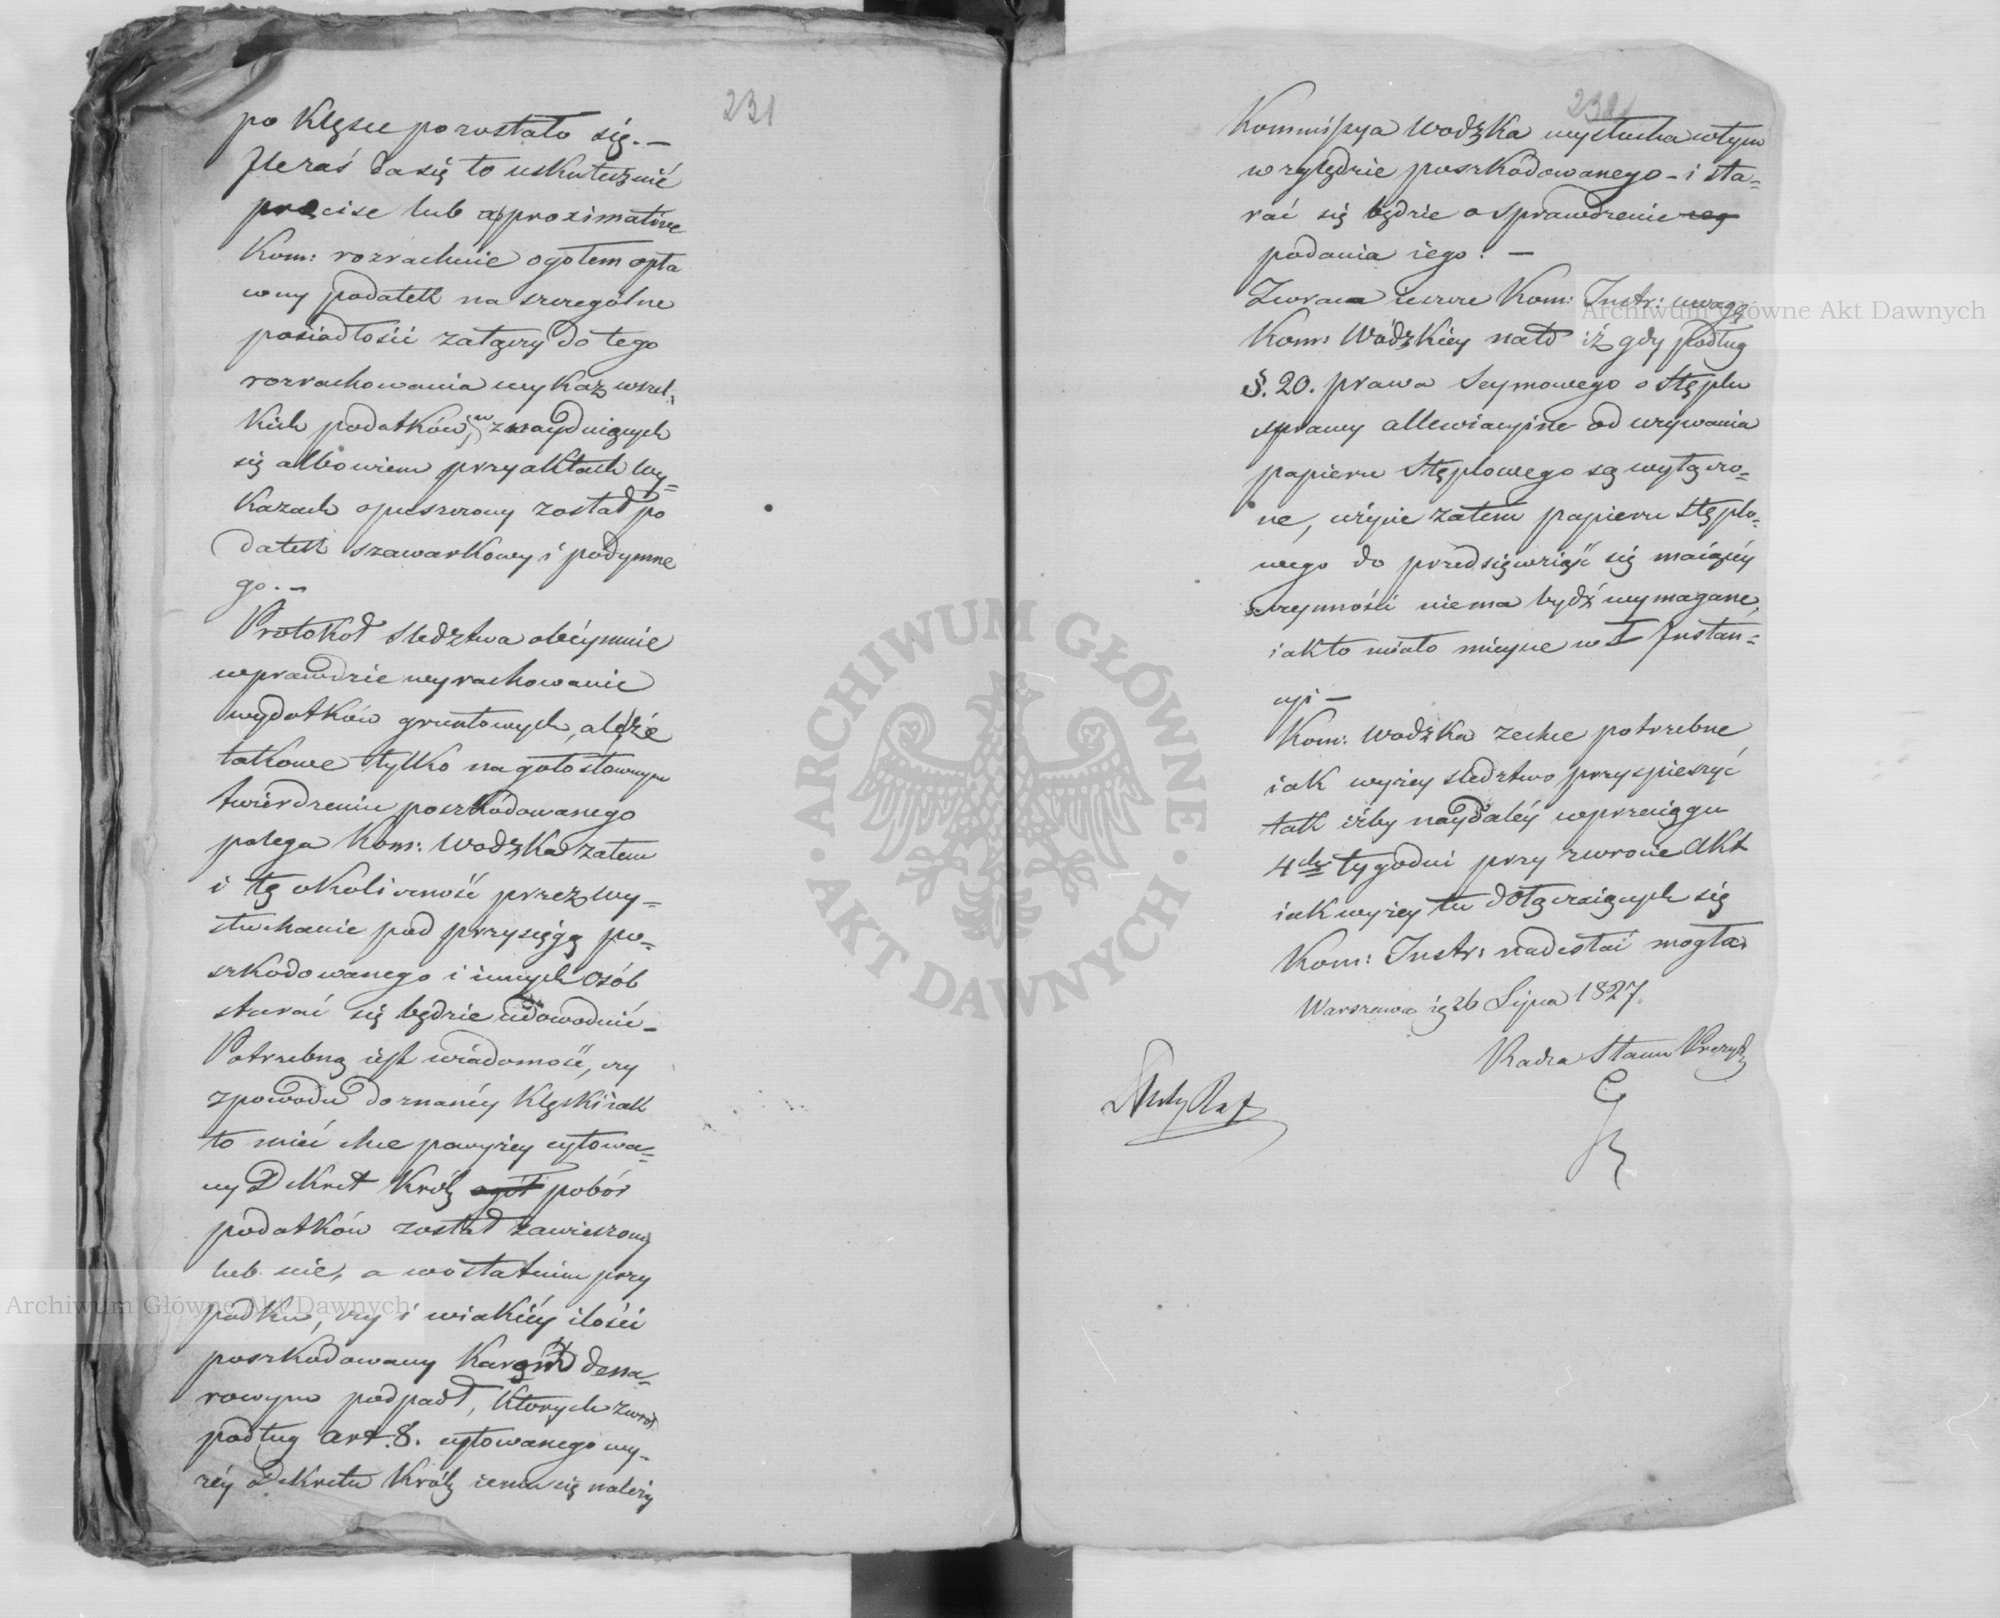 231
po Klęsce pozostało się. —
Ile zaś da się to uskutecznić
precise lub approximative
Kom: rozrachuie ogołem opła
cony podatek na szczególne
posiadłości załączy do tego
rozrachowania wykaz wszel-
kich podatków, w znayduiących
się albowiem przy aktach wy=
kazach opuszczony został po
datek szawarkowy i podymne
go. —
Protokół śledztwa obéymuie
wprawdzie wyrachowanie
wydatków gruntowych, ale że
takowe tylko na gołosłownym
twierdzeniu poszkodowanego
polega Kom: Wodzka zatem
i tę okoliczność przez wy=
słuchanie pod przysięgą po-
szkodowanego i innych osób
starać się będzie udowodnić —
Potrzebną iest wiadomość, czy
z powodu doznanéy Klęski iak
to mieć chce powyżey cytowa=
ny Dekret Król: ogół pobór
podatków został zawieszony
lub nie, a w ostatnim przy
padku, czy i w iakiéy ilości
poszkodowany Karom dena-
rowym podpadł, Których zwrot
podług art. 8. cytowanego wy-
żéy Dekretu Król: iemu się należy
232
Kommissya Wodzka wysłucha w tym
względzie poszkodowanego - i sta=
rać się będzie o sprawdzenie
podania iego. —
Zwraca ieszcze Kom: Instr: uwagę
Kom: Wódzkiey nato iż gdy podług
§. 20. prawa Seymowego o Stęplu
sprawy allewiacyjne od używania
papieru Stęplowego są wyłączo=
ne, użycie zatem papieru Stęplo-
wego do przedsięwziąść się maiącéy
czynności niema bydź wymagane,
iak to miało mieysce w I Instan=
cyi —
Kom: Wodzka zechce potrzebne
iak wyżey śledztwo przyspieszyć
tak iżby naydaléy w przeciągu
4ch tygodni przy zwrocie Akt
iak wyżey tu dołączaiących się
Kom: Instr: nadesłać mogła.
Warszawa 26 Lipca 1827.
Radca Stanu Prezyd: